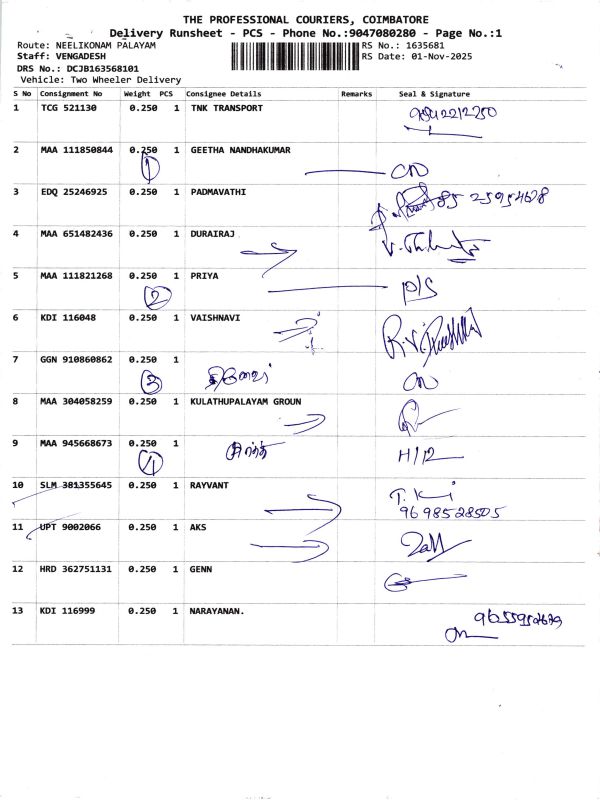 THE PROFESSIONAL COURIERS, COIMBATORE
Delivery Runsheet - PCS - Phone No.:9047080280 - Page No.:1
Route: NEELIKONAM PALAYAM RS No.: 1635681
Staff: VENGADESH RS Date: 01-Nov-2025
DRS No.: DCJB163568101
Vehicle: Two Wheeler Delivery
S No Consignment No Weight PCS Consignee Details Remarks Seal & Signature
1 TCG 521130 0.250 1 TNK TRANSPORT 9842212250
2 MAA 111850844 0.250 1 GEETHA NANDHAKUMAR
1
3 EDQ 25246925 0.250 1 PADMAVATHI 85 25954678
4 MAA 651482436 0.250 1 DURAIRAJ
5 MAA 111821268 0.250 1 PRIYA
2 D/S
6 KDI 116048 0.250 1 VAISHNAVI
7 GGN 910860862 0.250 1
3
8 MAA 304058259 0.250 1 KULATHUPALAYAM GROUN
9 MAA 945668673 0.250 1
4 H/12
10 SLM 381355645 0.250 1 RAYVANT
9698528505
11 UPT 9002066 0.250 1 AKS
12 HRD 362751131 0.250 1 GENN
13 KDI 116999 0.250 1 NARAYANAN.